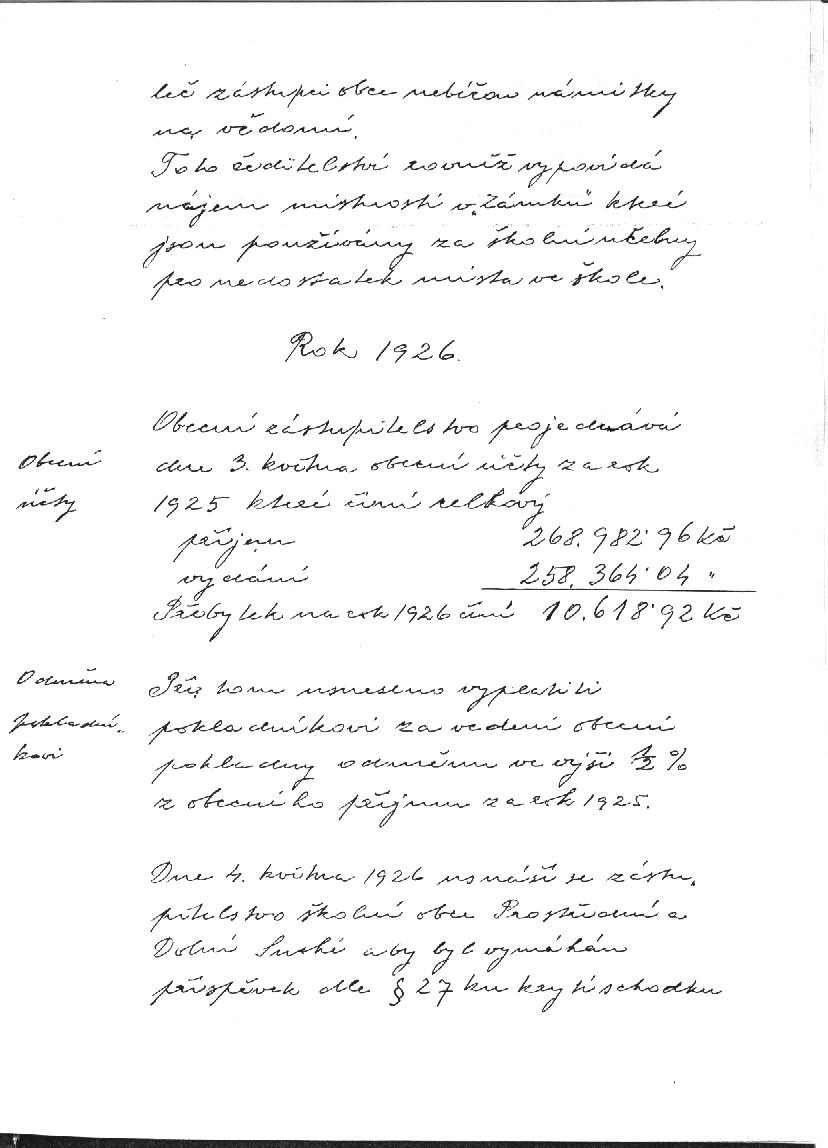 leč zástupci obce neběžou námitky
na vědomí.
Toho ředitelství rovněž vypovídá
nájem místností v „Zámku" které
jsou používány za školní učebny
pro nedostatek místa ve škole.
Rok 1926.
Obecní zástupitelstvo projednává
Obecní
dne 3. května obecní účty za rok
účty
1925 které činí celkový
příjem 268.982·96 Kč
vydání 258.364·04 "
Přebytek na rok 1926 činí 10.618·92 Kč
Odměna
Při tom usneseno vyplatiti
pokladní-
pokladníkovi za vedení obecní
kovi
pokladny odměnu ve výši ½ %
z obecního příjmu za rok 1925.
Dne 4. května 1926 usnáší se zástu-
pitelstvo školní obce Prostřední a
Dolní Suché aby byl vymáhán
příspěvek dle § 27 ku krytí schodku